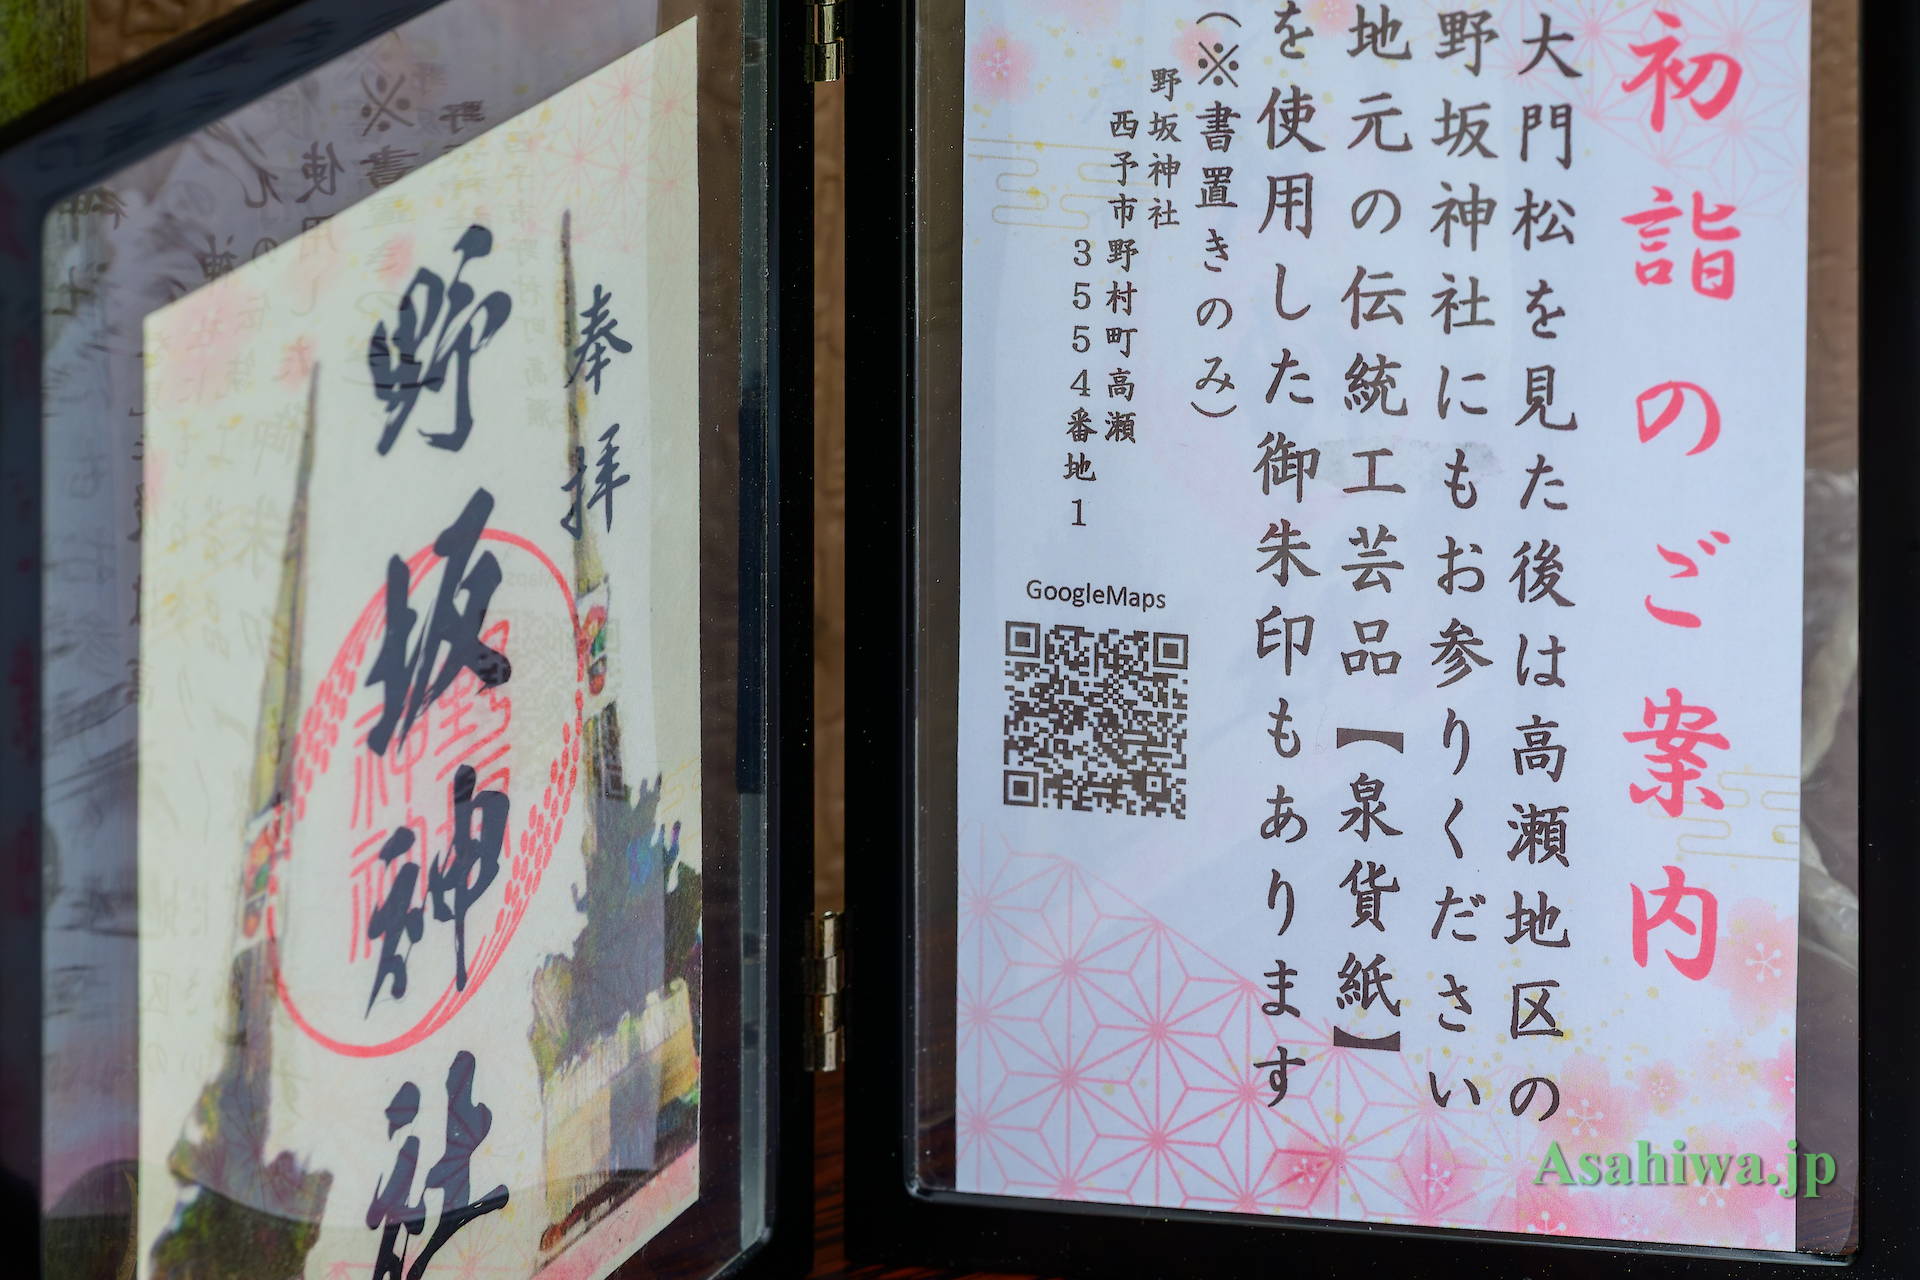 初詣のご案内
大門松を見た後は高瀬地区の
野坂神社にもお参りください
地元の伝統工芸品【泉貨紙】
を使用した御朱印もあります
（※書置きのみ）
野坂神社
西予市野村町高瀬
3554番地1
GoogleMaps
奉拝
野坂神社
Asahiwa.jp